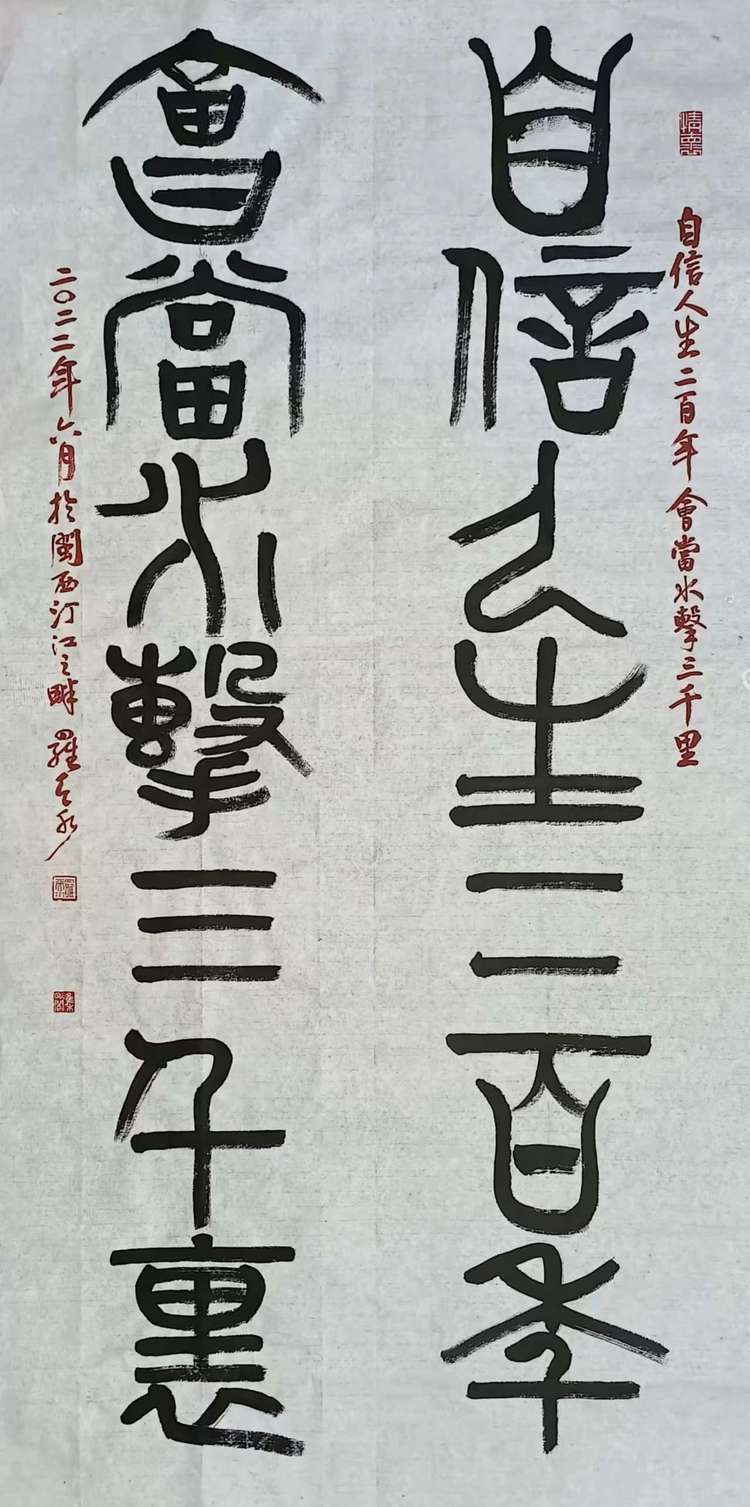 自信人生二百年 會當水擊三千里
自信人生二百年
會當水擊三千裏
二〇二二年六月於閩西汀江之畔 羅